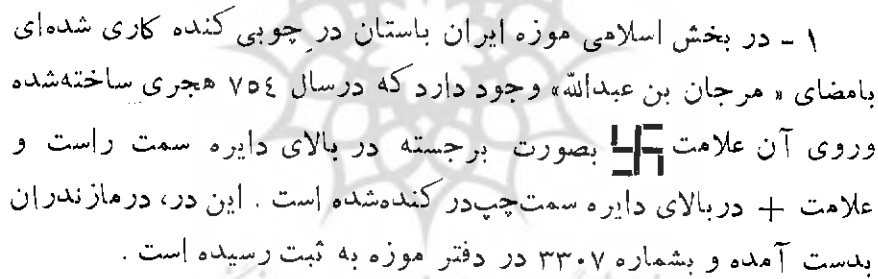 ۱ - در بخش اسلامی موزه ایران باستان در چوبی کنده کاری شده‌ای
بامضای « مرجان بن عبدالله» وجود دارد که درسال ۷۵٤ هجری ساخته‌شده
وروی آن علامت 卐 بصورت برجسته در بالای دایره سمت راست و
علامت + دربالای دایره سمت‌چپ‌در کنده‌شده است . این در، درمازندران
بدست آمده و بشماره ۳۳۰۷ در دفتر موزه به ثبت رسیده است .